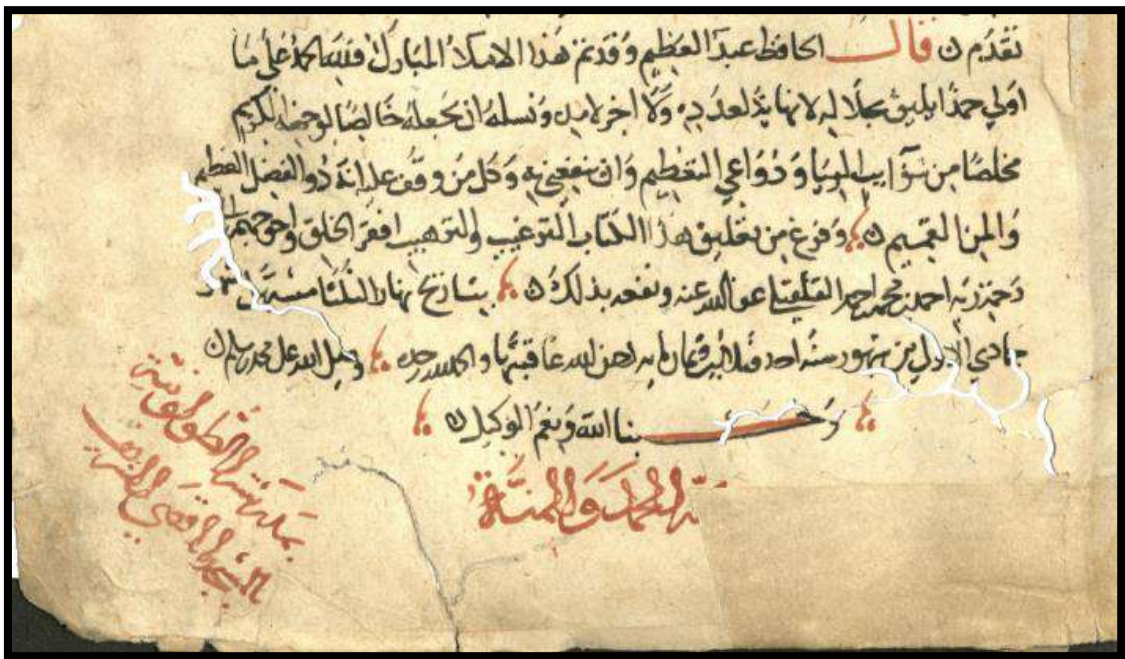 تقدم ن قال الحافظ عبد العظيم وقد تم هذا الاملا المبارك فلله الحمد على ما
اولي حمدا يليق بجلاله لا نهاية لعدده ولا اخر لامده ونسله ان يجعله خالصا لوجهه الكريم
مخلصا من شوايب الريا ودواعي التعظيم وان ينفعني به وكل من وقف عليه انه ذو الفضل العظيم
والمن العميم ن وفرغ من تعليق هذا الكتاب الترغيب والترهيب افقر الخلق واحوجهم الى
رحمة ربه احمد بن محمد بن احمد عفا الله عنه ونفعه بذلك ن بتاريخ نهار الثلثا مستهل شهر
جمادي الاول من شهور سنه احد وثلاثين وثمان مايه احسن الله عاقبتها والحمد لله وحده وصلى الله على محمد وسلم ن
وحسبنا الله ونعم الوكيل ن
لله الحمد والمنة